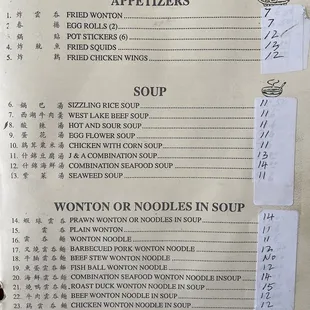 APPETIZERS
1. 炸 雲 吞 FRIED WONTON 7
2. 春 卷 EGG ROLLS (2) 7
4. 鍋 貼 POT STICKERS (6) 12
4. 炸 魷 魚 FRIED SQUIDS 13
5. 炸 鷄 FRIED CHICKEN WINGS 12
SOUP
6. 鍋 巴 湯 SIZZLING RICE SOUP 11
7. 西湖牛肉羹 WEST LAKE BEEF SOUP 11
8. 酸 辣 湯 HOT AND SOUR SOUP 11
9. 蛋 花 湯 EGG FLOWER SOUP 11
10. 鷄茸粟米湯 CHICKEN WITH CORN SOUP 11
11. 什錦豆腐湯 J & A COMBINATION SOUP 13
12. 什錦海鮮湯 COMBINATION SEAFOOD SOUP 14
13. 紫 菜 湯 SEAWEED SOUP 11
WONTON OR NOODLES IN SOUP
14. 蝦 球 雲 吞 PRAWN WONTON OR NOODLES IN SOUP 14
15. 雲 吞 PLAIN WONTON 11
16. 雲 吞 麵 WONTON NOODLE 11
17. 叉燒雲吞麵 BARBECUED PORK WONTON NOODLE 12
18. 牛腩雲吞麵 BEEF STEW WONTON NOODLE No
19. 魚蛋雲吞麵 FISH BALL WONTON NOODLE 12
20. 海鮮雲吞麵 COMBINATION SEAFOOD WONTON NOODLE INSOUP 14
21. 燒鴨雲吞麵 ROAST DUCK WONTON NOODLE IN SOUP 15
22. 牛肉雲吞麵 BEEF WONTON NOODLE IN SOUP 12
23. 鷄 雲 吞 麵 CHICKEN WONTON NOODLE IN SOUP 12